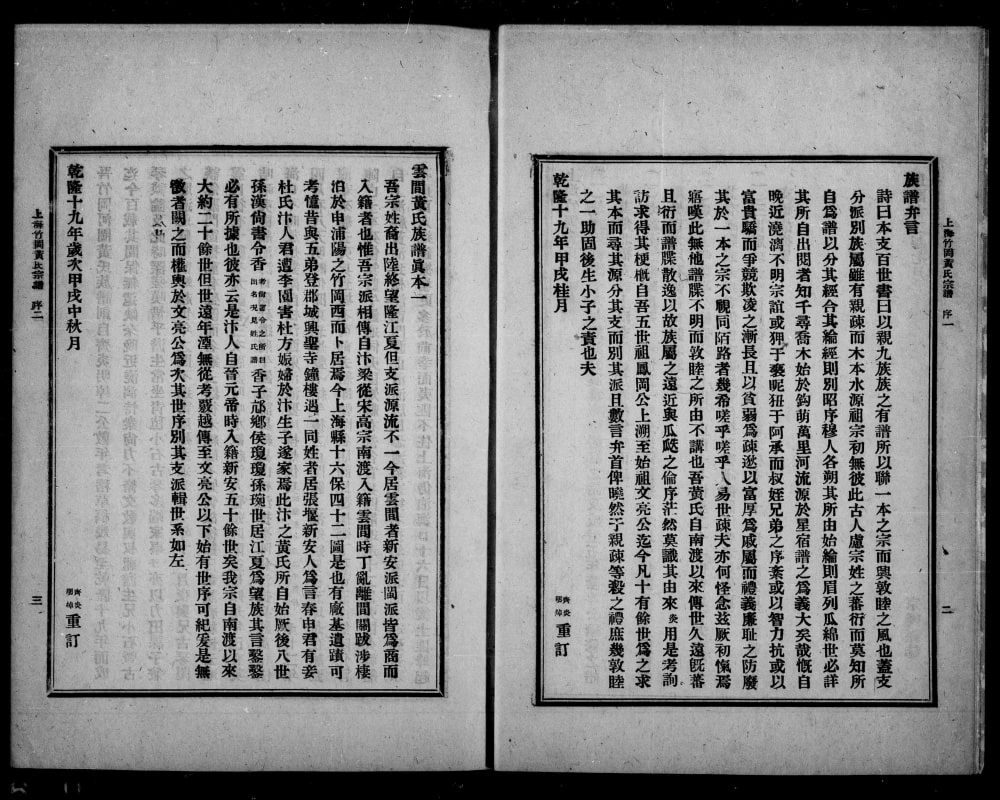 上海竹岡黃氏宗譜 序一
二
族譜弁言
詩曰本支百世書曰以親九族族之有譜所以聯一本之宗而興敦睦之風也蓋支
分派別族屬雖有親疎而木本水源祖宗初無彼此古人慮宗姓之蕃衍而莫知所
自爲譜以分其經合其綸經則別昭序穆人各朔其所由始綸則眉列瓜綿世必詳
其所自出閱者知千尋喬木始於鈎萌萬里河流源於星宿譜之爲義大矣哉慨自
晩近澆漓不明宗誼或狎于褻昵狃于阿承而叔姪兄弟之序紊或以智力抗或以
富貴驕而爭競欺凌之漸長且以貧弱爲疎逖以富厚爲戚屬而禮義廉恥之防廢
其於一本之宗不覸同陌路者幾希嗟乎嗟乎人易世疎夫亦何怪念茲厥初愾焉
寤嘆此無他譜牒不明而敦睦之所由不講也吾黃氏自南渡以來傳世久遠旣蕃
且衍而譜牒散逸以故族屬之遠近與瓜瓞之倫序茫然莫識其由來炎用是考詢
訪求得其梗槪自吾五世祖鳳岡公上溯至始祖文亮公迄今凡十有餘世爲之求
其本而尋其源分其支而別其派且數言弁首俾曉然于親疎等殺之禮庶幾敦睦
之一助固後生小子之責也夫
乾隆十九年甲戌桂月
炎
重訂
上海竹岡黃氏宗譜 序二
三
雲間黃氏族譜眞本一
吾宗姓裔出陸終望隆江夏但支派源流不一今居雲間者新安派閩派皆爲商而
入籍者也惟吾宗派相傳自汴梁從宋高宗南渡入籍雲間時丁亂離間關跋涉棲
泊於申浦陽之竹岡西而卜居焉今上海縣十六保四十二圖是也有廠基遺蹟可
考憶昔與五弟登郡城興聖寺鐘樓遇一同姓者居張堰新安人爲言春申君有妾
杜氏汴人君遭李園害杜方娠歸於汴生子遂家焉此汴之黃氏所自始厥後八世
孫漢尙書令香
香子邟鄉侯瓊瓊孫琬世居江夏爲望族其言鑿鑿
必有所據也彼亦云是汴人自晉元帝時入籍新安五十餘世矣我宗自南渡以來
大約二十餘世但世遠年湮無從考覈越傳至文亮公以下始有世序可紀爰是無
徵者闕之而權輿於文亮公爲次其世序別其支派輯世系如左
乾隆十九年歲次甲戌中秋月
炎
重訂